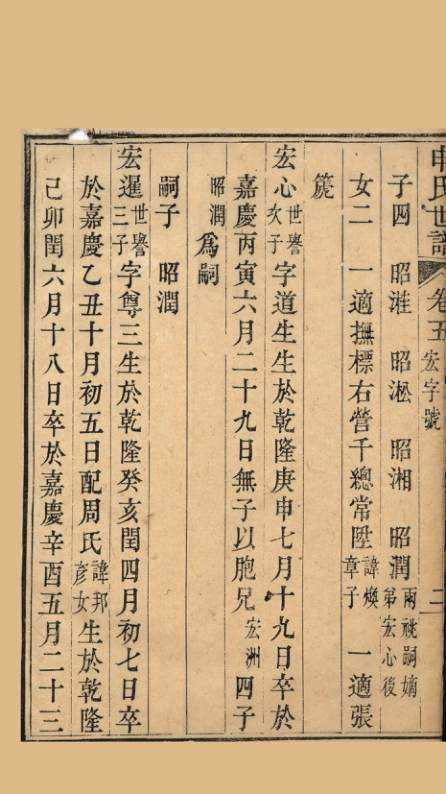 申氏世譜 卷五 宏字號 二
子四 昭滩 昭淞 昭湘 昭潤 兩祧嗣嫡弟宏心後
女二 一適撫標右營千總常陞 諱煥章子 一適張
箎
宏心 世譽次子 字道生生於乾隆庚申七月十九日卒於
嘉慶丙寅六月二十九日無子以胞兄 宏洲 四子
昭潤 爲嗣
嗣子 昭潤
宏暹 世譽三子 字尊三生於乾隆癸亥閏四月初七日卒
於嘉慶乙丑十月初五日配周氏 諱邦彥女 生於乾隆
己卯閏六月十八日卒於嘉慶辛酉五月二十三